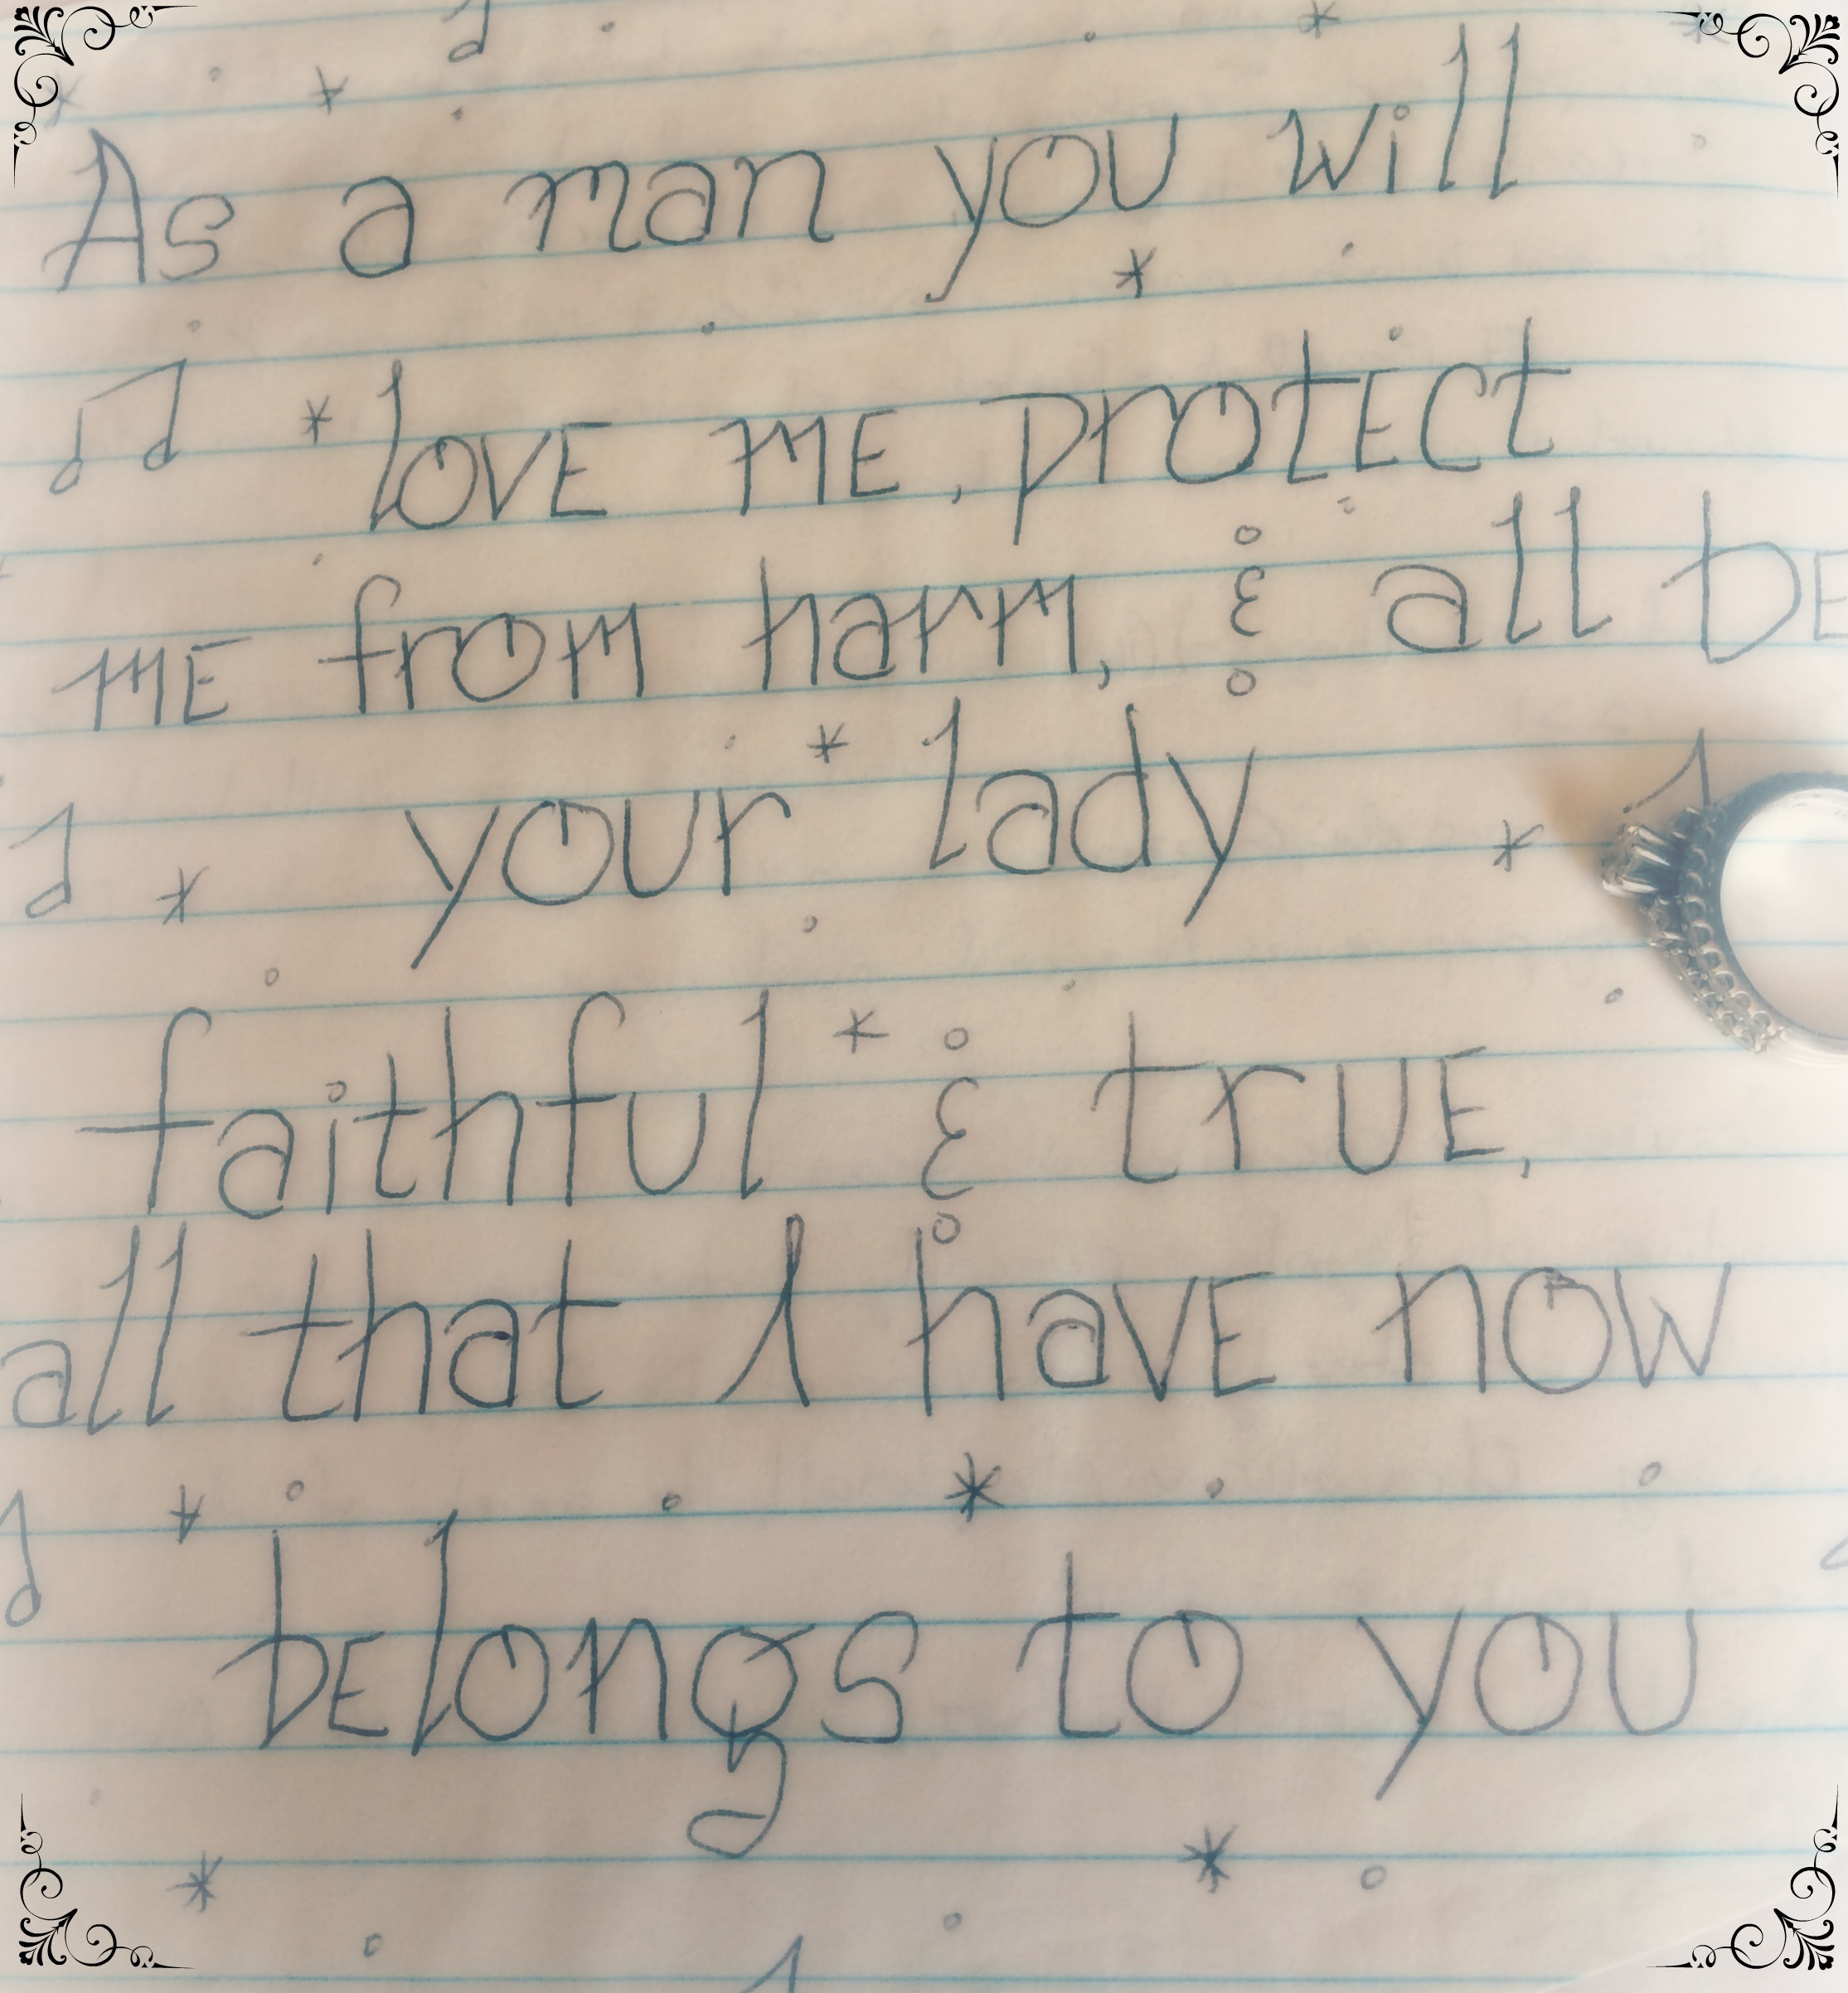 As a man you will
love me, protect
me from harm, & all be
your lady
faithful & true,
all that I have now
belongs to you